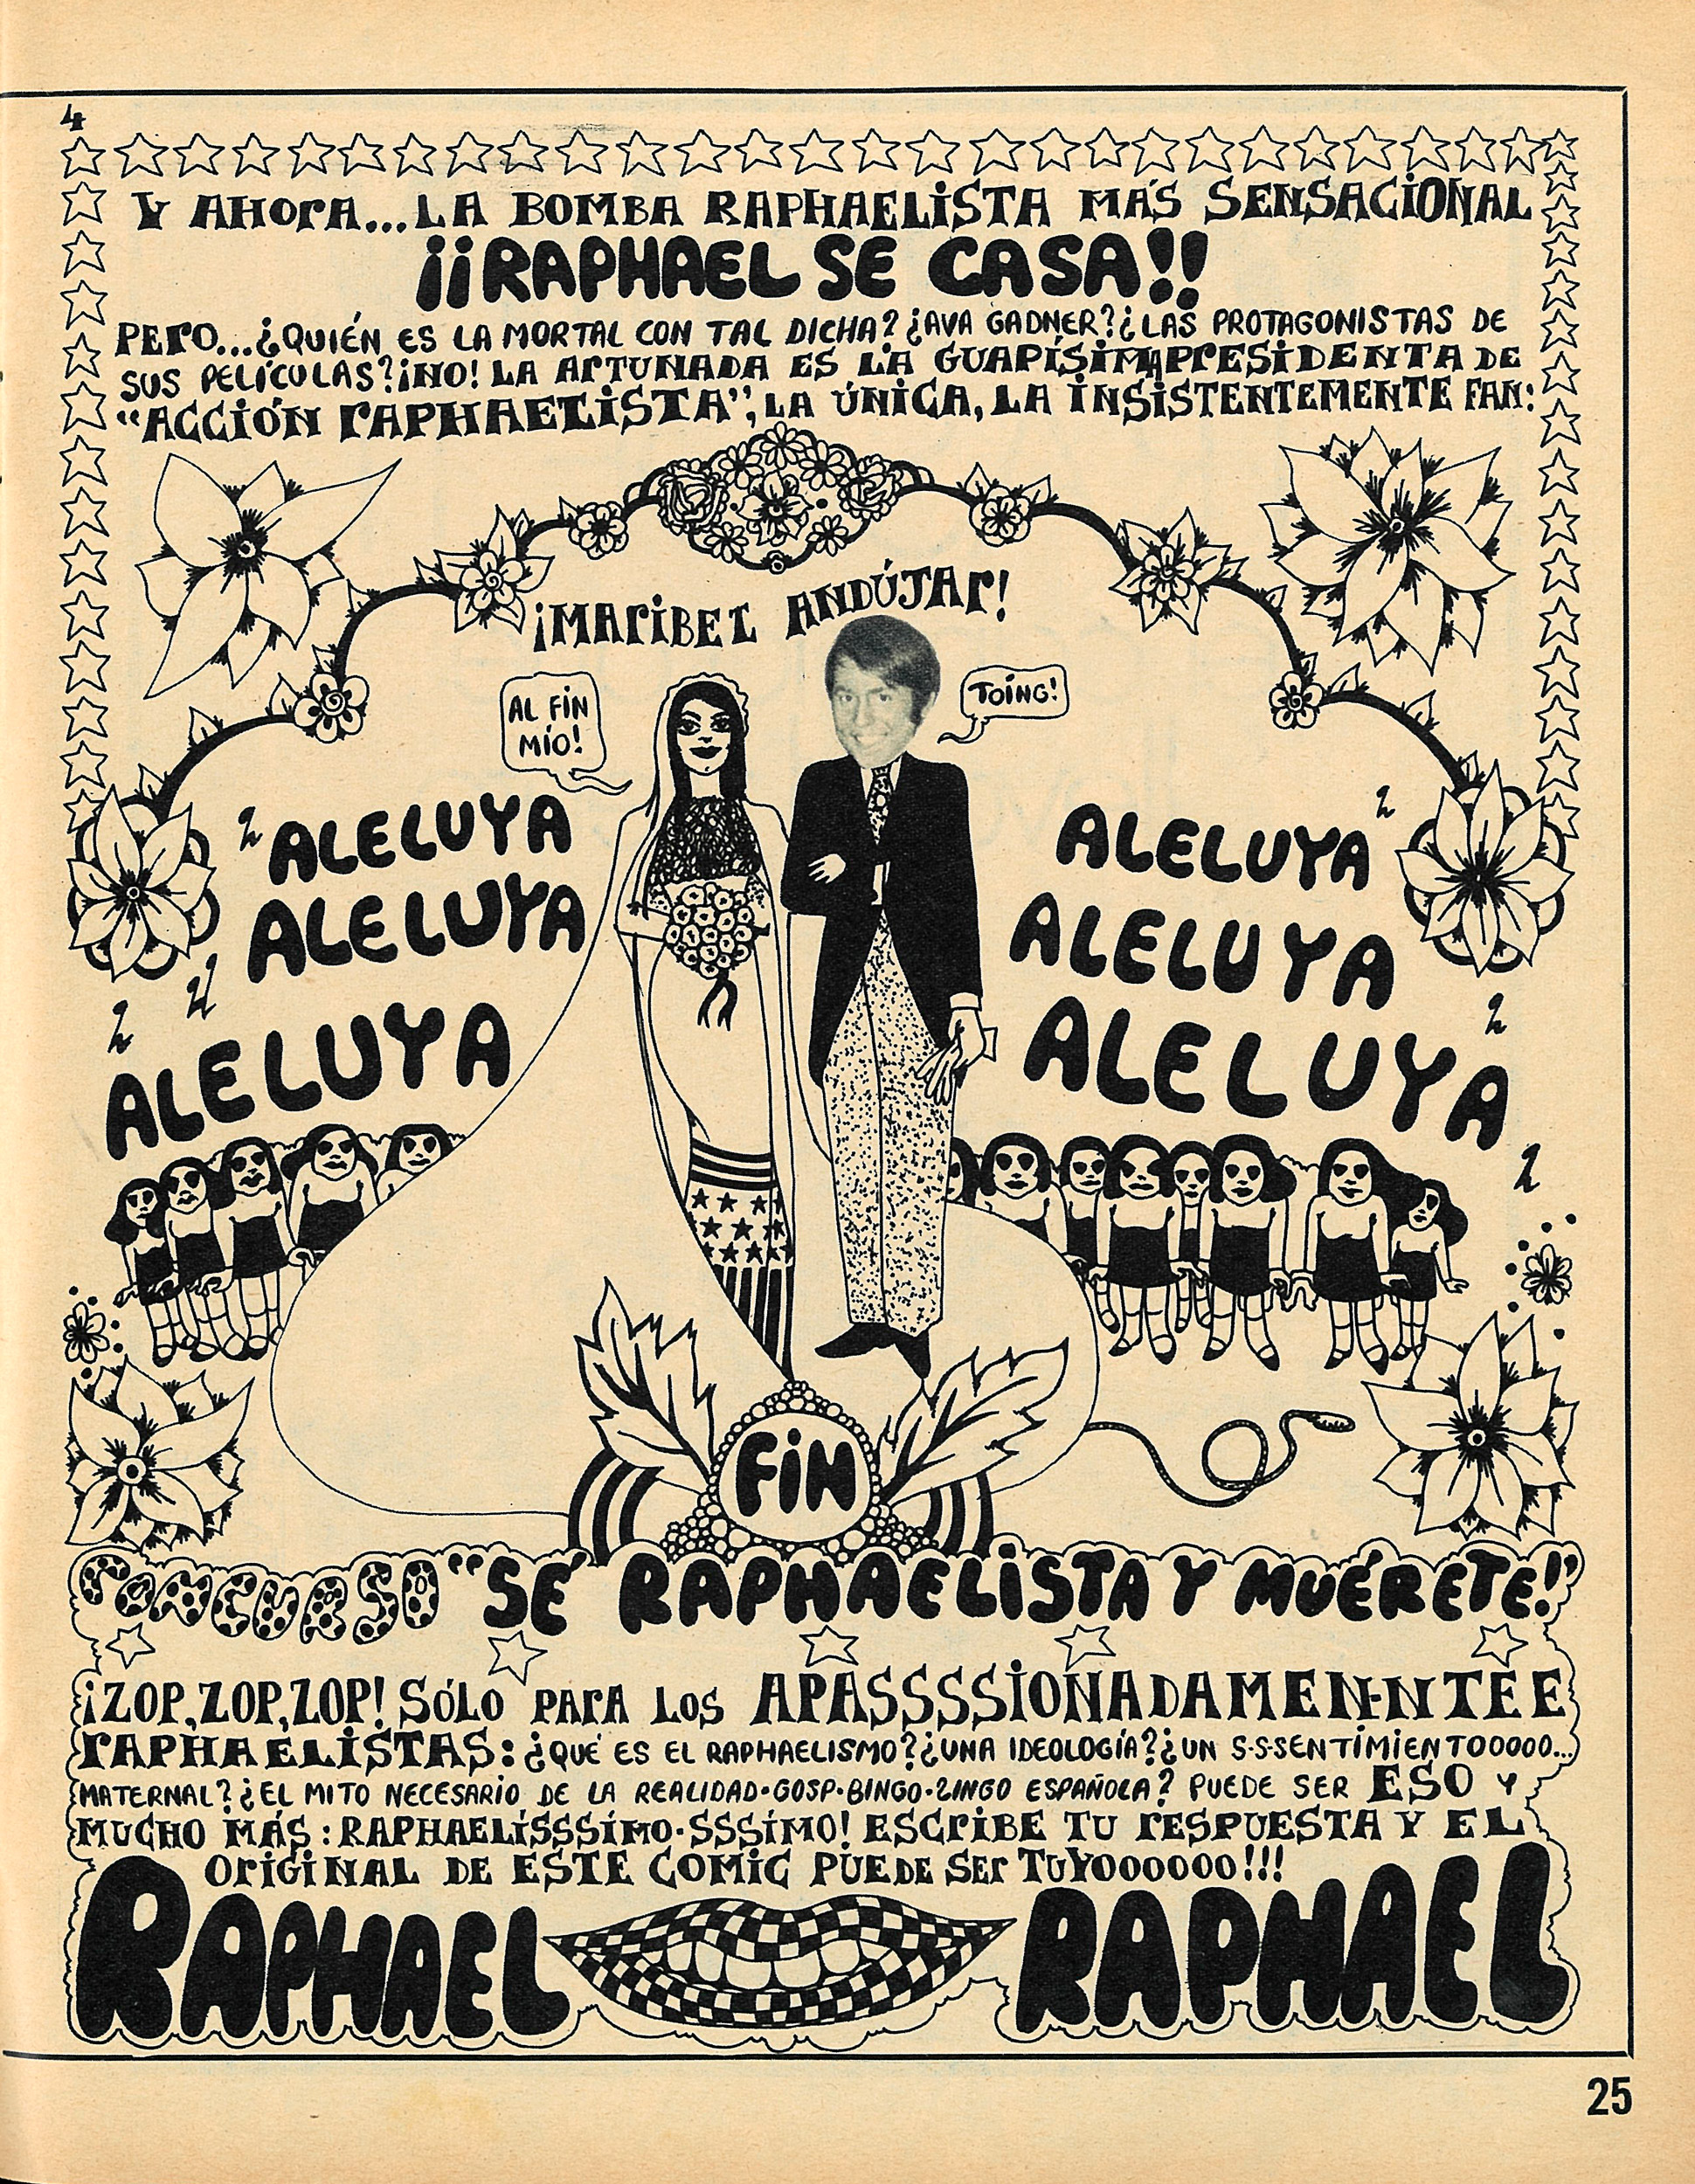 4
Y AHORA...LA BOMBA RAPHAELISTA MÁS SENSACIONAL
¡¡RAPHAEL SE CASA!!
PERO...¿QUIÉN ES LA MORTAL CON TAL DICHA? ¿AVA GADNER? ¿LAS PROTAGONISTAS DE
SUS PELÍCULAS? ¡NO! LA AFTUNADA ES LA GUAPÍSIMA PRESIDENTA DE
"ACCIÓN RAPHAELISTA", LA ÚNICA, LA INSISTENTEMENTE FAN:
¡MARIBEL ANDÚJAR!
AL FIN
MÍO!
TOING!
ALELUYA
ALELUYA
ALELUYA
ALELUYA
ALELUYA
ALELUYA
FIN
CONCURSO "SÉ RAPHAELISTA Y MUÉRETE!"
¡ZOP, ZOP, ZOP! SÓLO PARA LOS APASSSSIONADAMEN-NTEE
RAPHAELISTAS: ¿QUÉ ES EL RAPHAELISMO? ¿UNA IDEOLOGÍA? ¿UN S-S-SENTIMIENTOOOOO...
MATERNAL? ¿EL MITO NECESARIO DE LA REALIDAD·GOSP·BINGO·ZINGO ESPAÑOLA? PUEDE SER ESO Y
MUCHO MÁS: RAPHAELÍSSSÍMO·SSSÍMO! ESCRIBE TU RESPUESTA Y EL
ORIGINAL DE ESTE COMIC PUEDE SER TUYOOOOOO!!!
RAPHAEL RAPHAEL
25